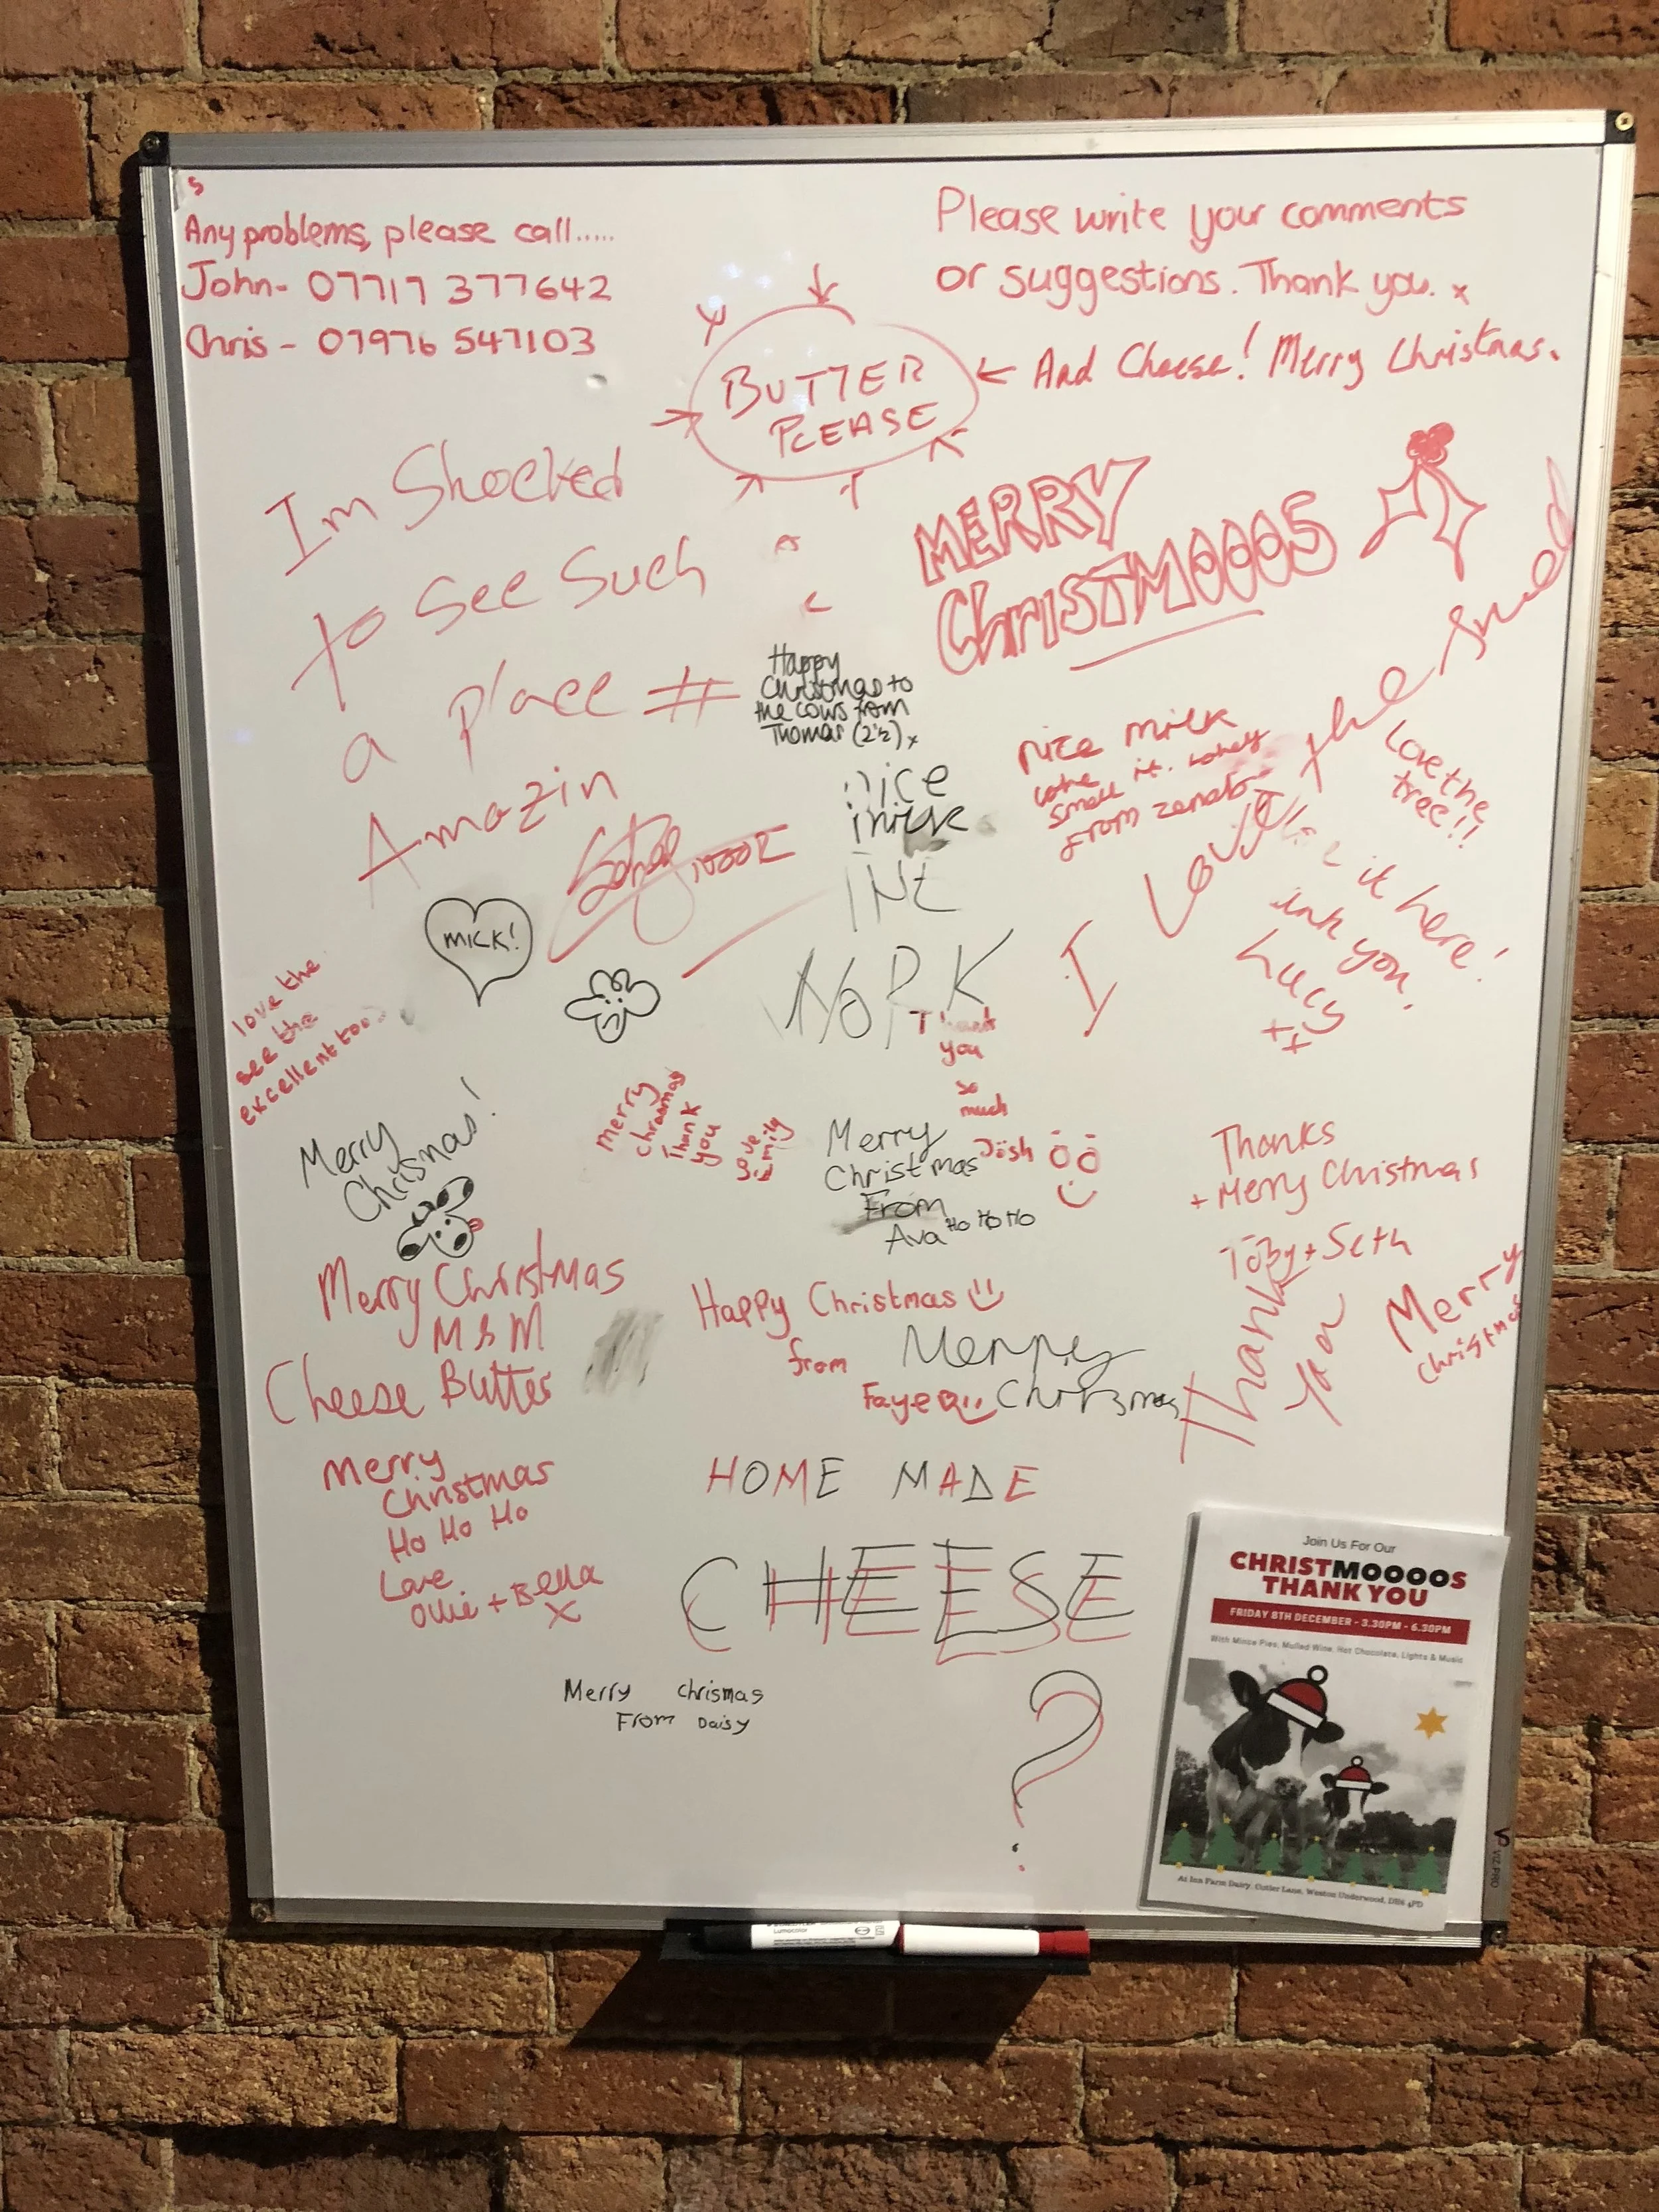 Any problems, please call.....
John- 07717 377642
Chris - 07976 547103
Please write your comments
or suggestions. Thank you. x
BUTTER
PLEASE
← And Cheese! Merry Christmas.
Im Shocked
to See Such
a place #
Amazin
MERRY
ChrISTMOOOS
Happy
Christmas to
the cows from
Thomas (2½) x
nice
milk
nice milk
small it.
from
I Love the shed
Love the
tree!!
it here!
you.
Lucy
xx
MILK!
love the
see the
excellent too
Thank
you
so
much
Josh
Merry
Chrismas!
Merry
chrasmas
Thank
you
love
Emily
Merry
Christmas
From
Ava Ho Ho Ho
Thanks
+ Merry Christmas
Toby + Seth
Merry Christmas
M & M
Cheese Butter
Happy Christmas
from
Faye
Merry
Chrismas
Thank
you
Merry
christmas
Merry
Christmas
Ho Ho Ho
Love
Ollie + Bella
X
HOME MADE
CHEESE
?
Merry chrismas
From Daisy
Join Us For Our
CHRISTMOOOOS
THANK YOU
FRIDAY 8TH DECEMBER - 3.30PM - 6.30PM
With Mince Pies, Mulled Wine, Hot Chocolate, Lights & Music
At Inn Farm Dairy, Cutler Lane, Weston Underwood, DH6 4PD
VIZ-PRO
Lumocolor